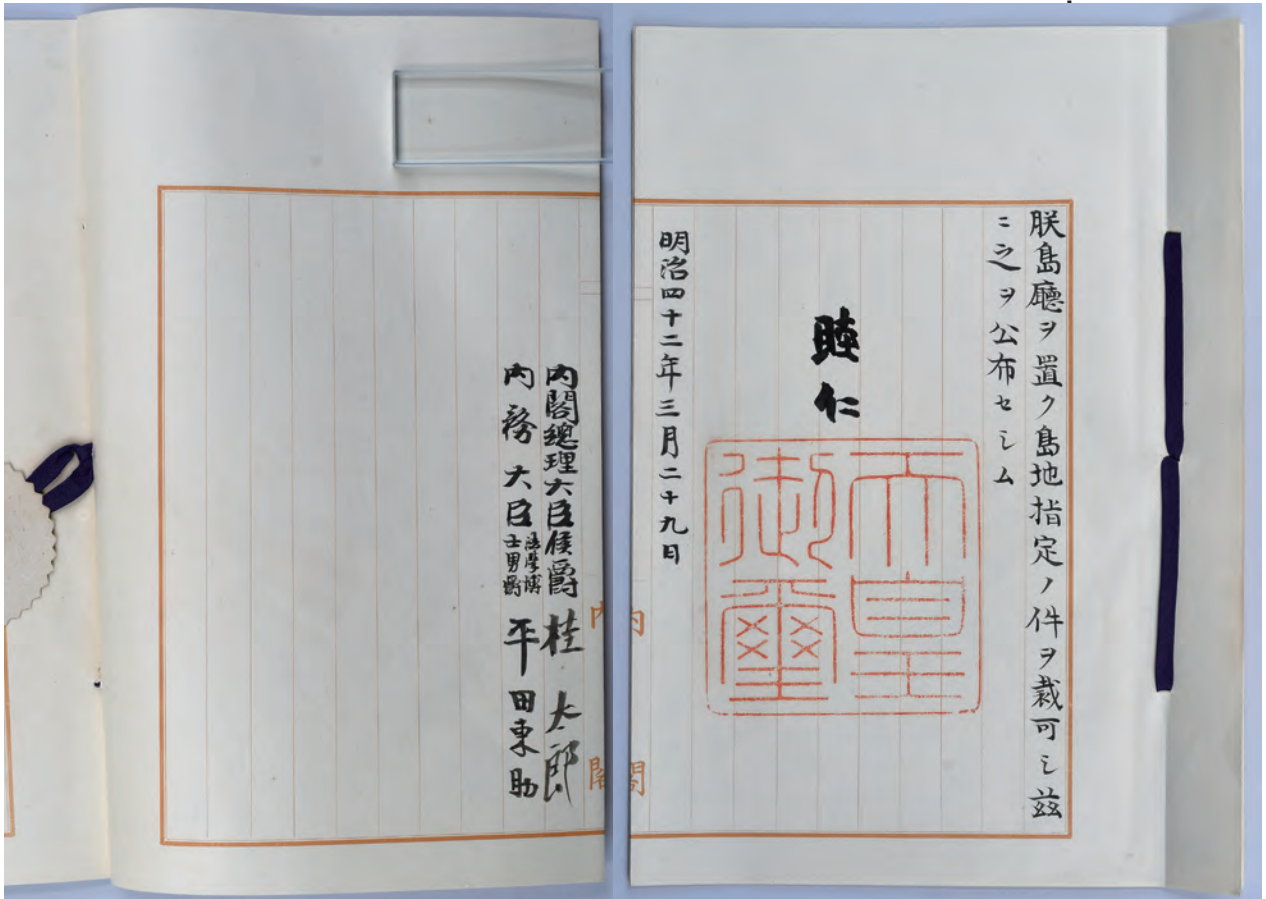 朕島廳ヲ置ク島地指定ノ件ヲ裁可シ茲
ニ之ヲ公布セシム
睦仁
天皇
御璽
明治四十二年三月二十九日
内閣
内閣總理大臣侯爵桂太郎
内務大臣法學博士男爵平田東助